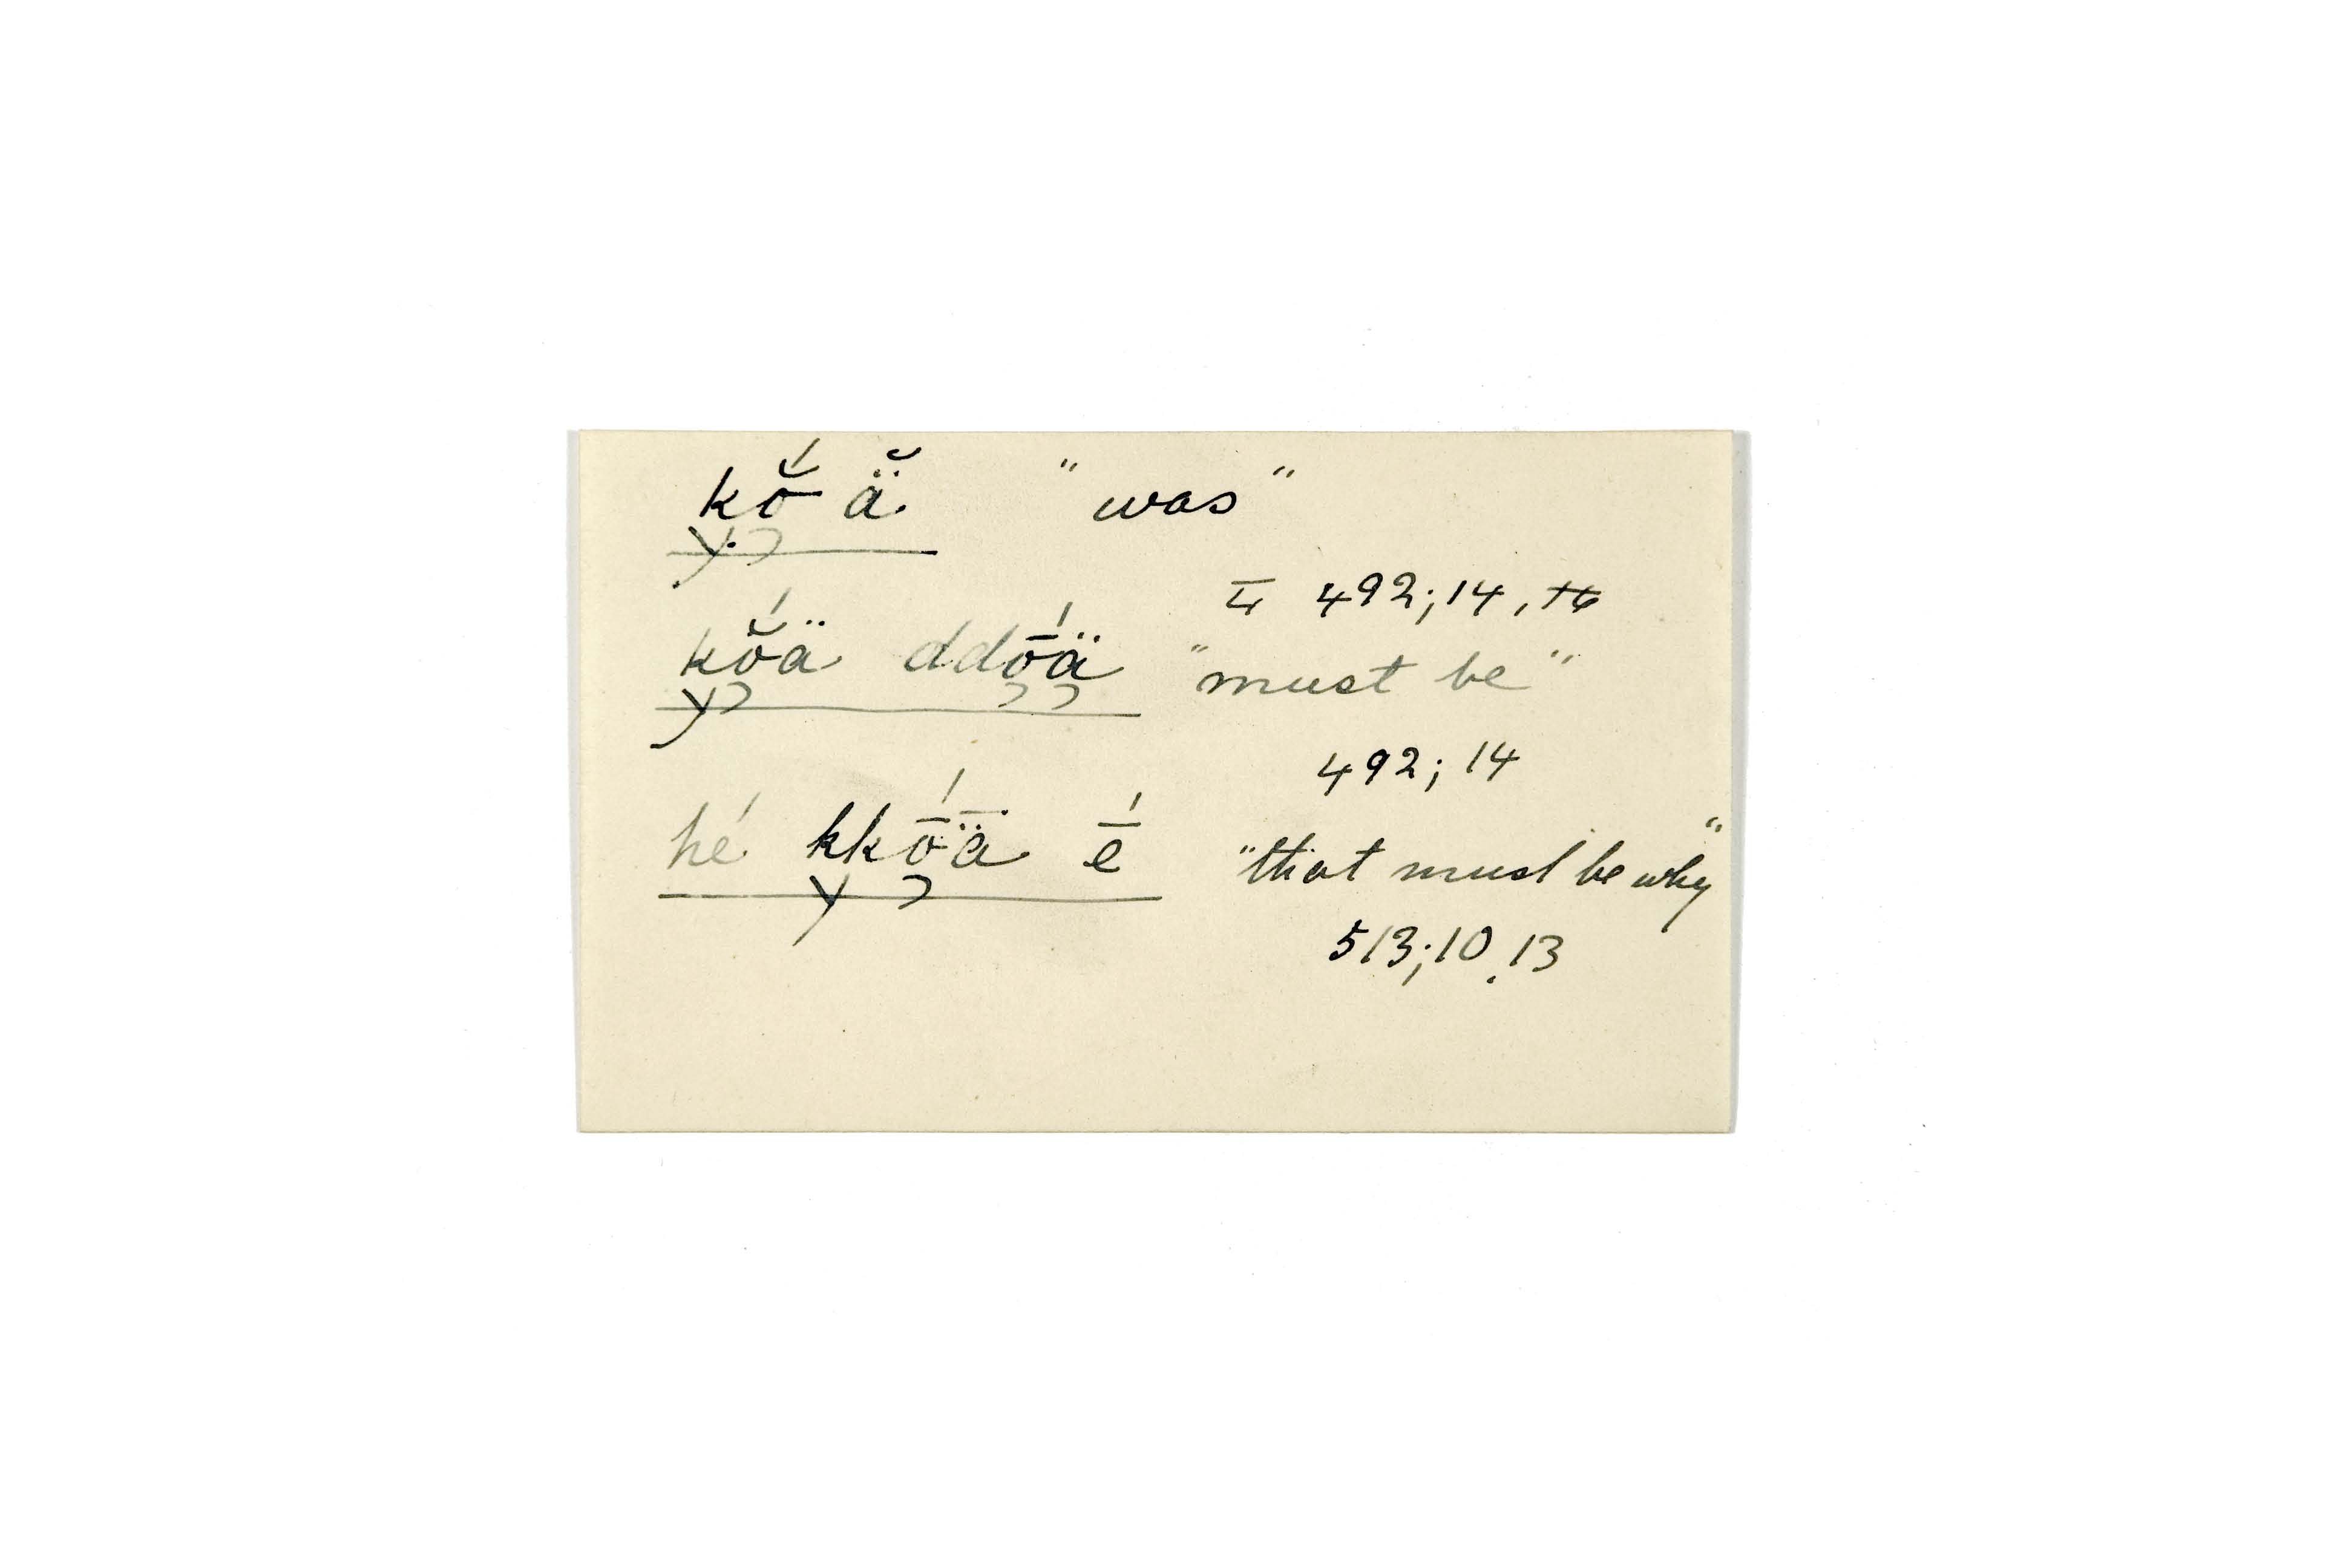 kŏ́ ä̆ "was"
II 492;14,16
kŏ́ä ddṓä "must be"
492; 14
hé kkṓǟ ḗ "that must be why"
513;10,13